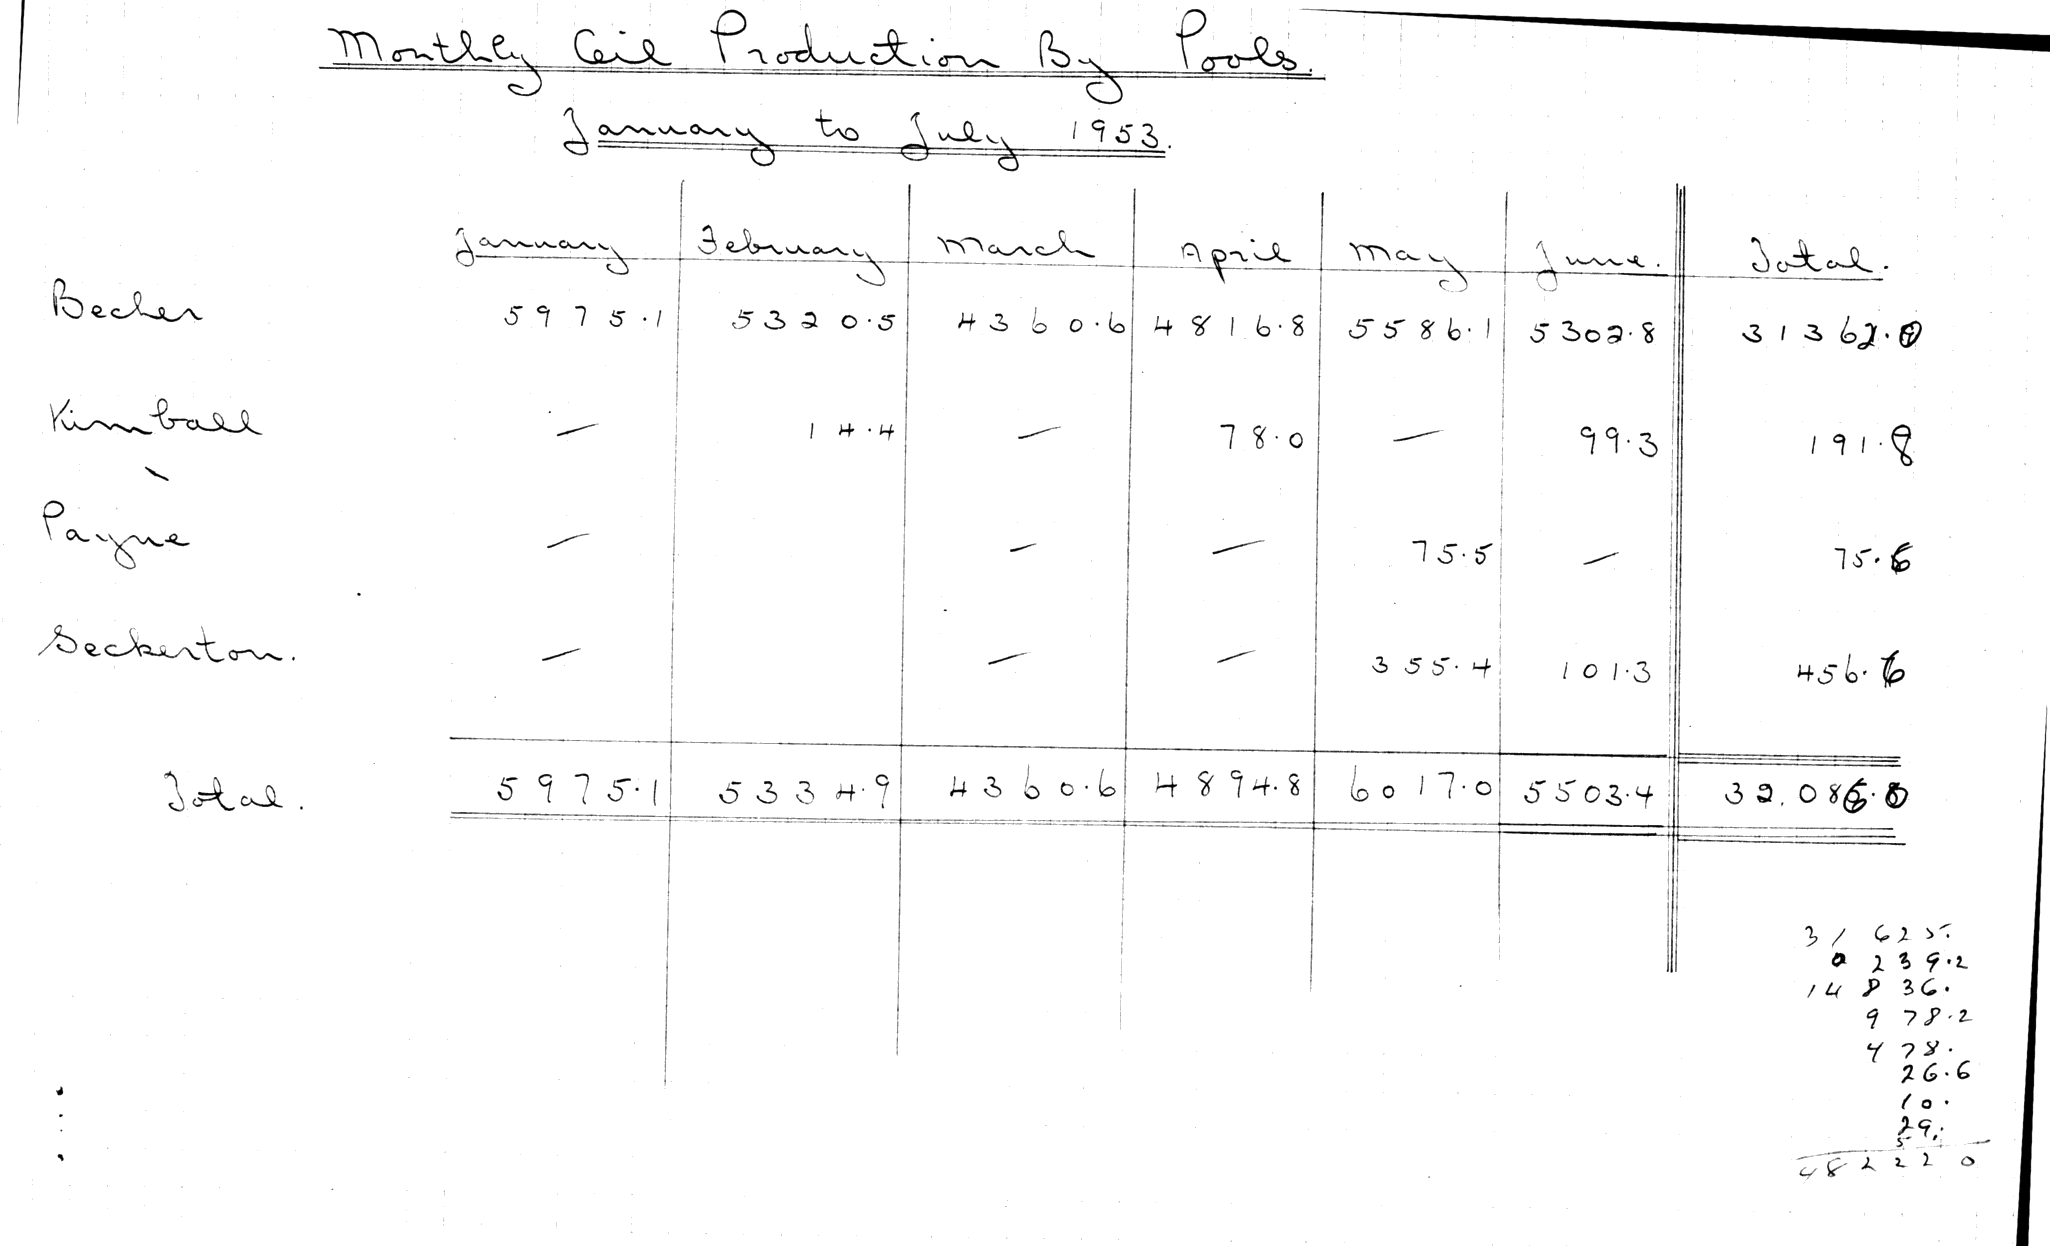 Monthly Oil Production By Pools.
January to July 1953.
January February March April May June. Total.
Becher 5975.1 5320.5 4360.6 4816.8 5586.1 5302.8 31362.0
Kimball — 14.4 — 78.0 — 99.3 191.8
Payne — — — 75.5 — 75.6
Seckerton. — — — 355.4 101.3 456.6
Total. 5975.1 5334.9 4360.6 4894.8 6017.0 5503.4 32,086.0
31 625.
0 239.2
14 836.
9 78.2
4 78.
26.6
10.
29.
5
48222 0